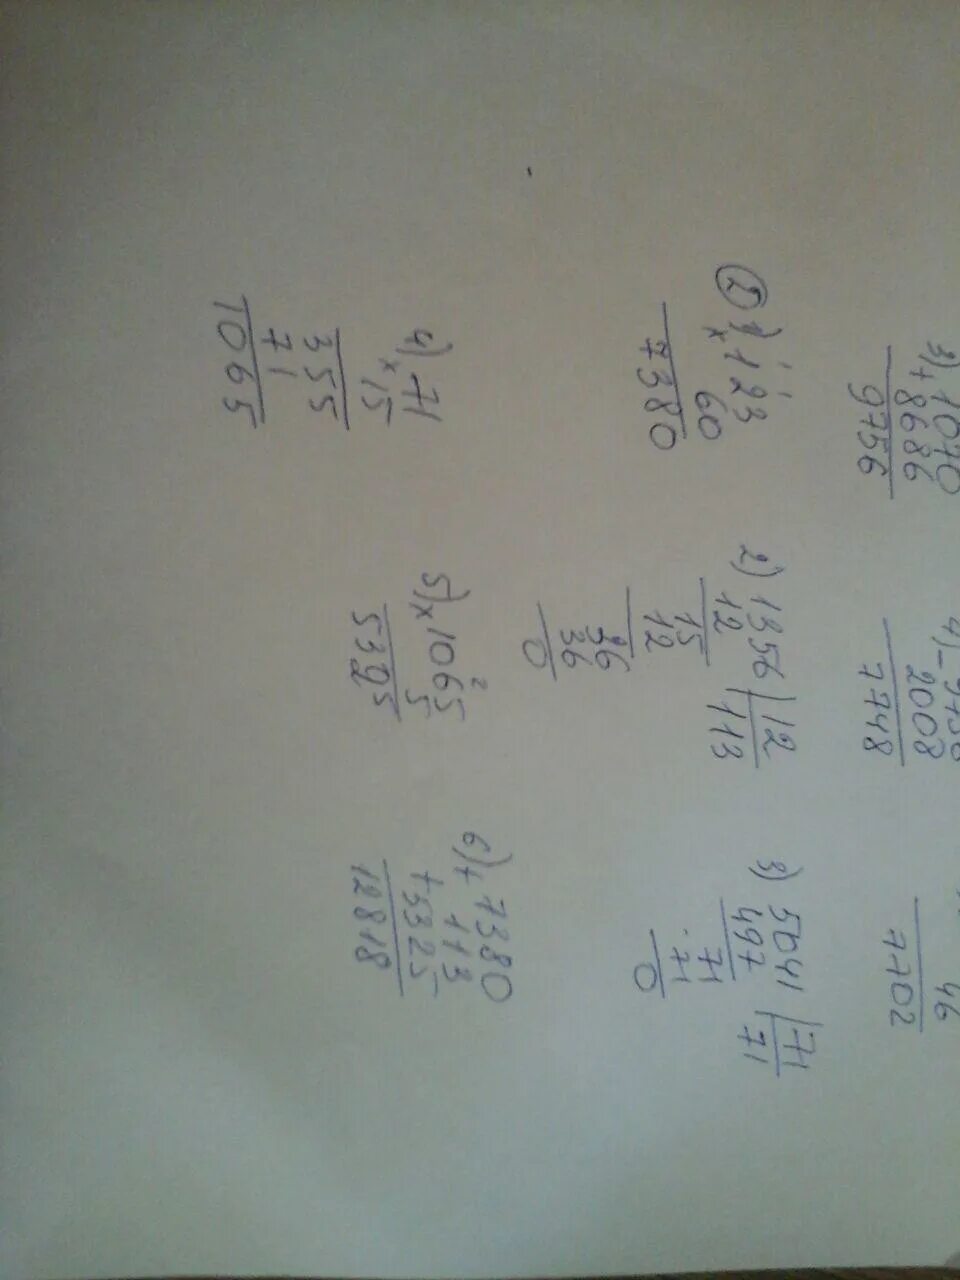 3) + 1070
8686
9756
4) - 9756
2008
7748
46
7702
2) 1) × 123
60
7380
2) 1356 | 12
12 113
15
12
36
36
0
3) 5041 | 71
497 71
71
71
0
4) 71
× 15
355
71
1065
5) × 1065
5
5395
6) + 7380
113
+ 5325
12818